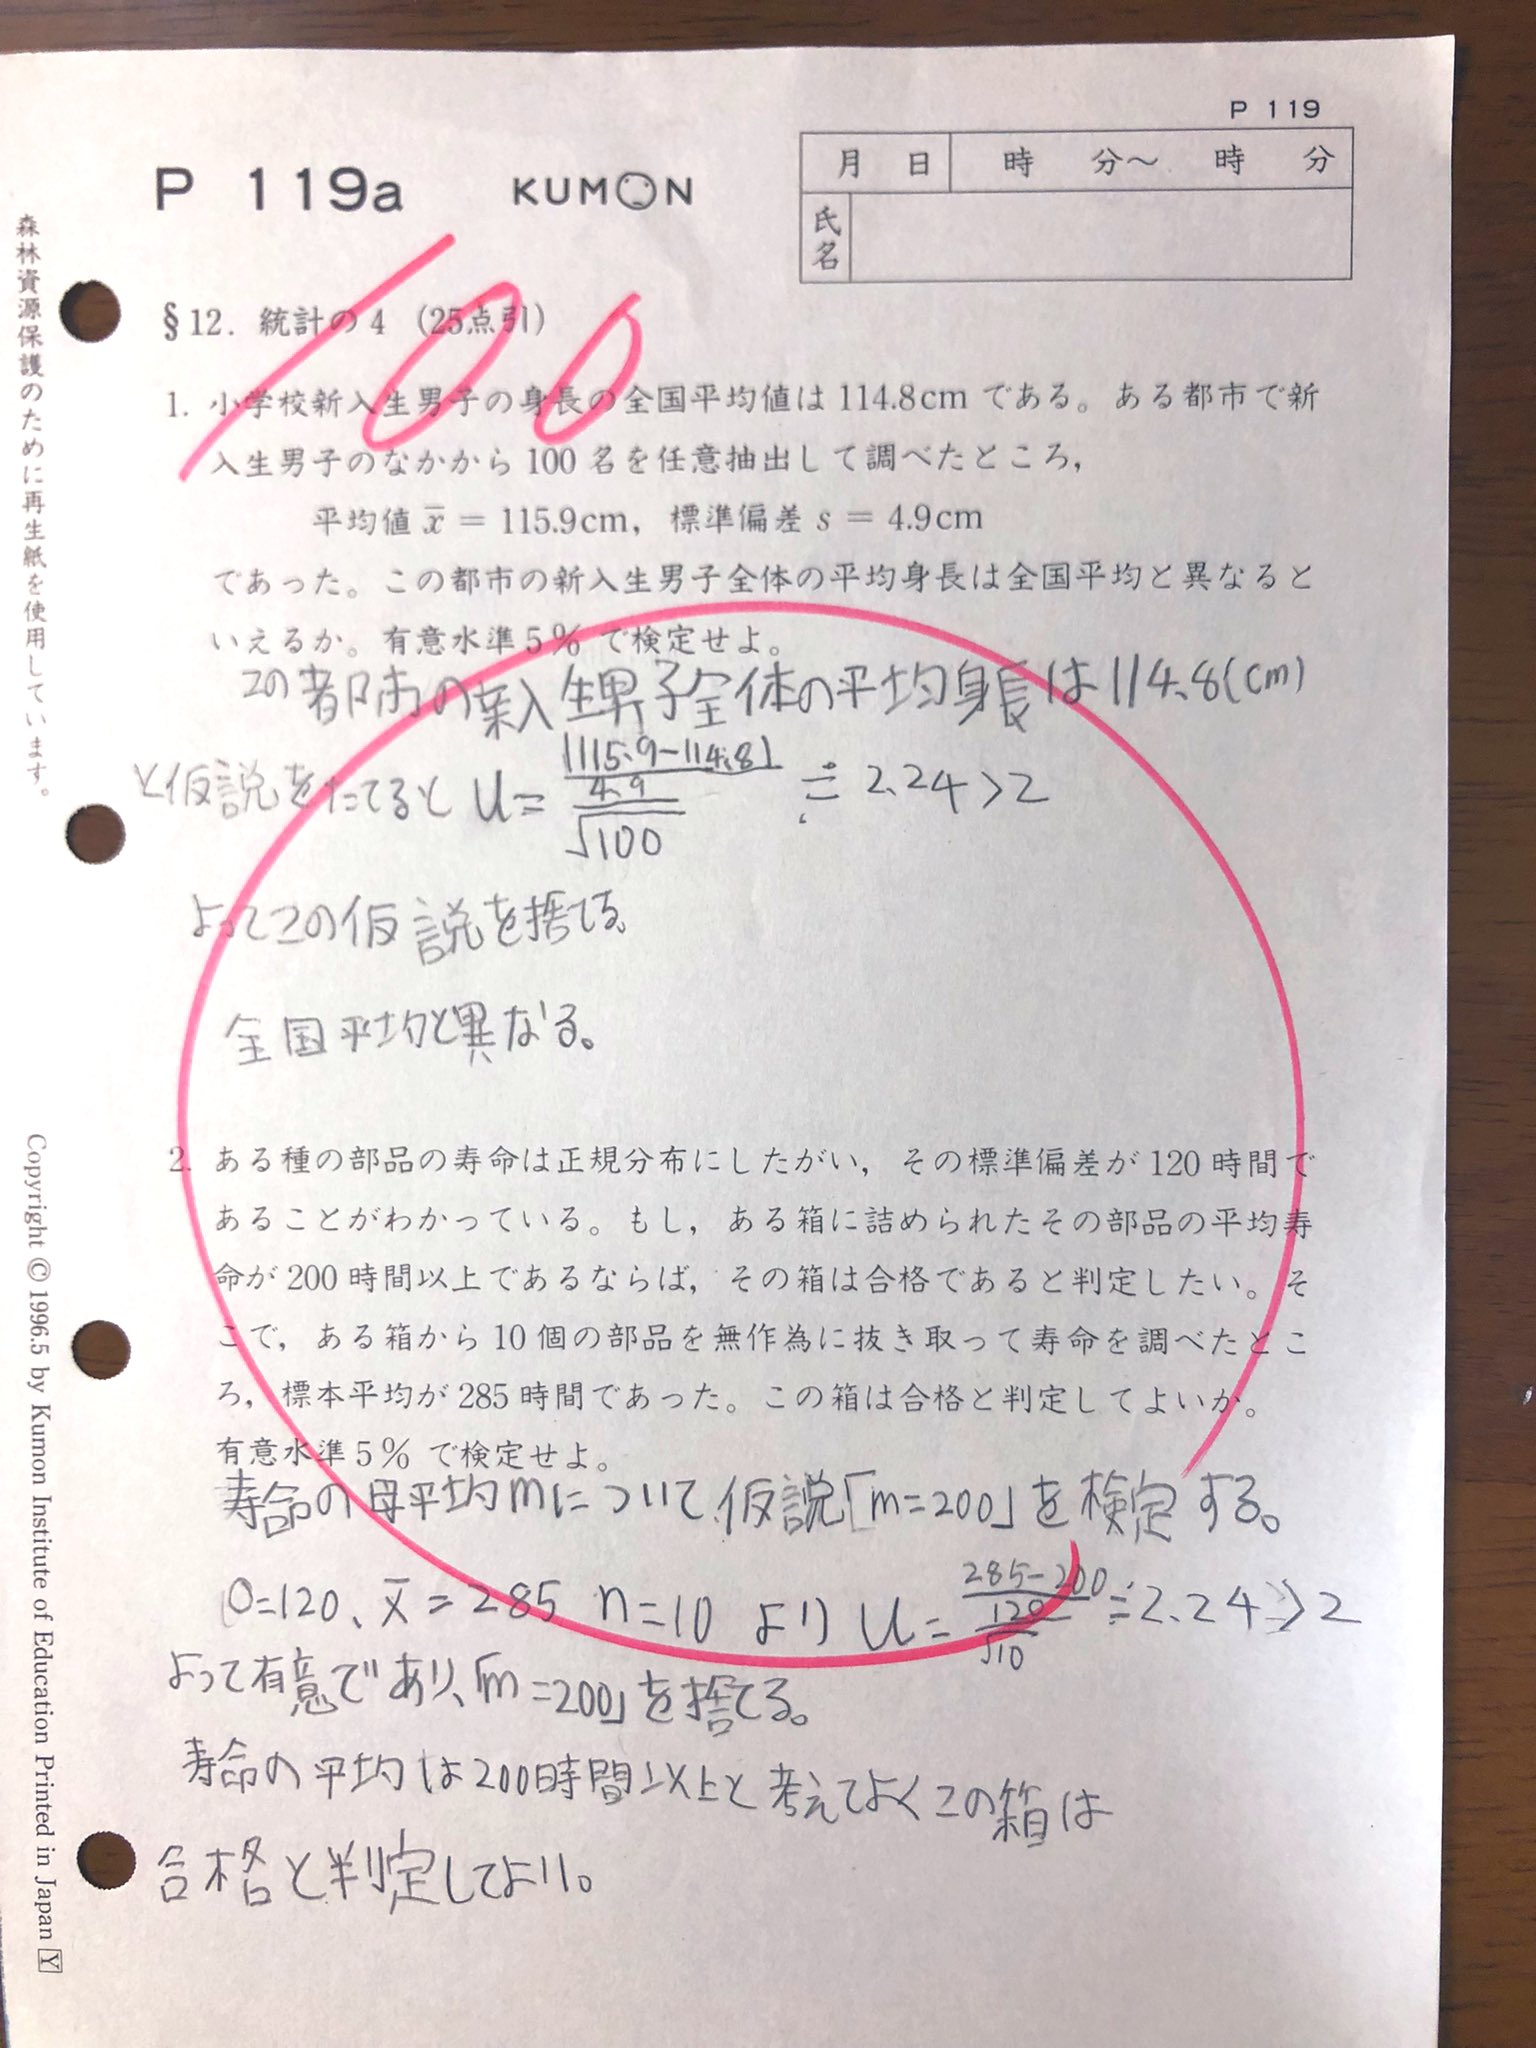 P 119
P 119a
KUMON
月 日 時 分～ 時 分
氏名
100
§12. 統計の4 (25点引)
1. 小学校新入生男子の身長の全国平均値は114.8cmである。ある都市で新
入生男子のなかから100名を任意抽出して調べたところ,
平均値 x̅ = 115.9cm, 標準偏差 s = 4.9cm
であった。この都市の新入生男子全体の平均身長は全国平均と異なると
いえるか。有意水準5% で検定せよ。
この都市の新入生男子全体の平均身長は114.8(cm)
と仮説をたてると u = |115.9-114.8| / (4.9/√100) ≒ 2.24 > 2
よってこの仮説を捨てる。
全国平均と異なる。
2. ある種の部品の寿命は正規分布にしたがい, その標準偏差が120時間で
あることがわかっている。もし, ある箱に詰められたその部品の平均寿
命が200時間以上であるならば, その箱は合格であると判定したい。そ
こで, ある箱から10個の部品を無作為に抜き取って寿命を調べたとこ
ろ, 標本平均が285時間であった。この箱は合格と判定してよいか。
有意水準5% で検定せよ。
寿命の母平均mについて、仮説「m=200」を検定する。
σ=120、x̅=285 n=10 より u = (285-200) / (120/√10) ≒ 2.24 > 2
よって有意であり、「m=200」を捨てる。
寿命の平均は200時間以上と考えてよくこの箱は
合格と判定してよい。
森林資源保護のために再生紙を使用しています。
Copyright © 1996.5 by Kumon Institute of Education Printed in Japan Y